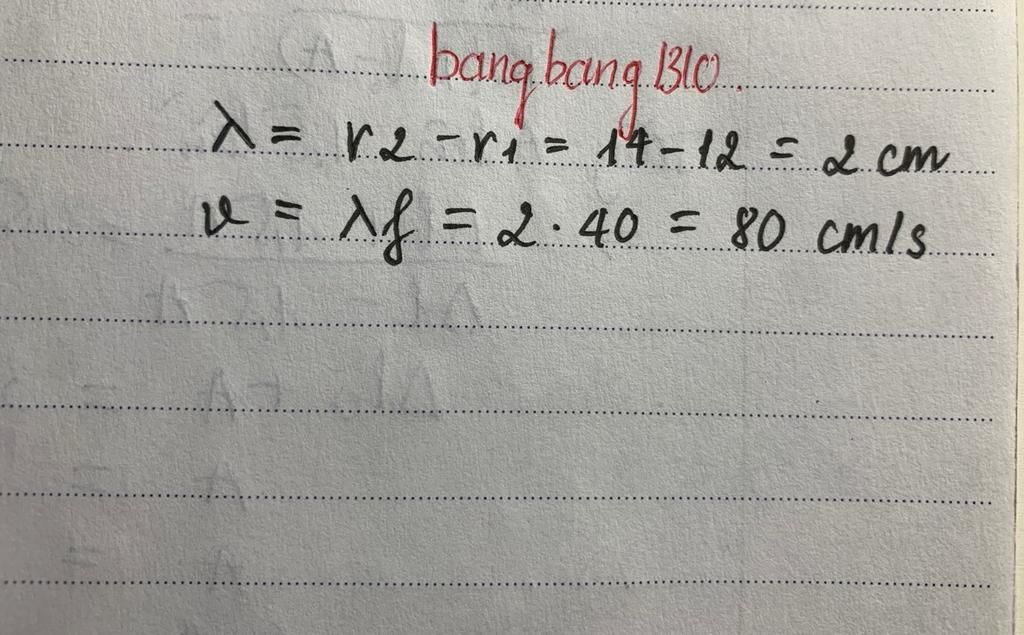 bangbang1310.
λ = r2 - r1 = 14 - 12 = 2 cm
v = λf = 2 . 40 = 80 cm/s